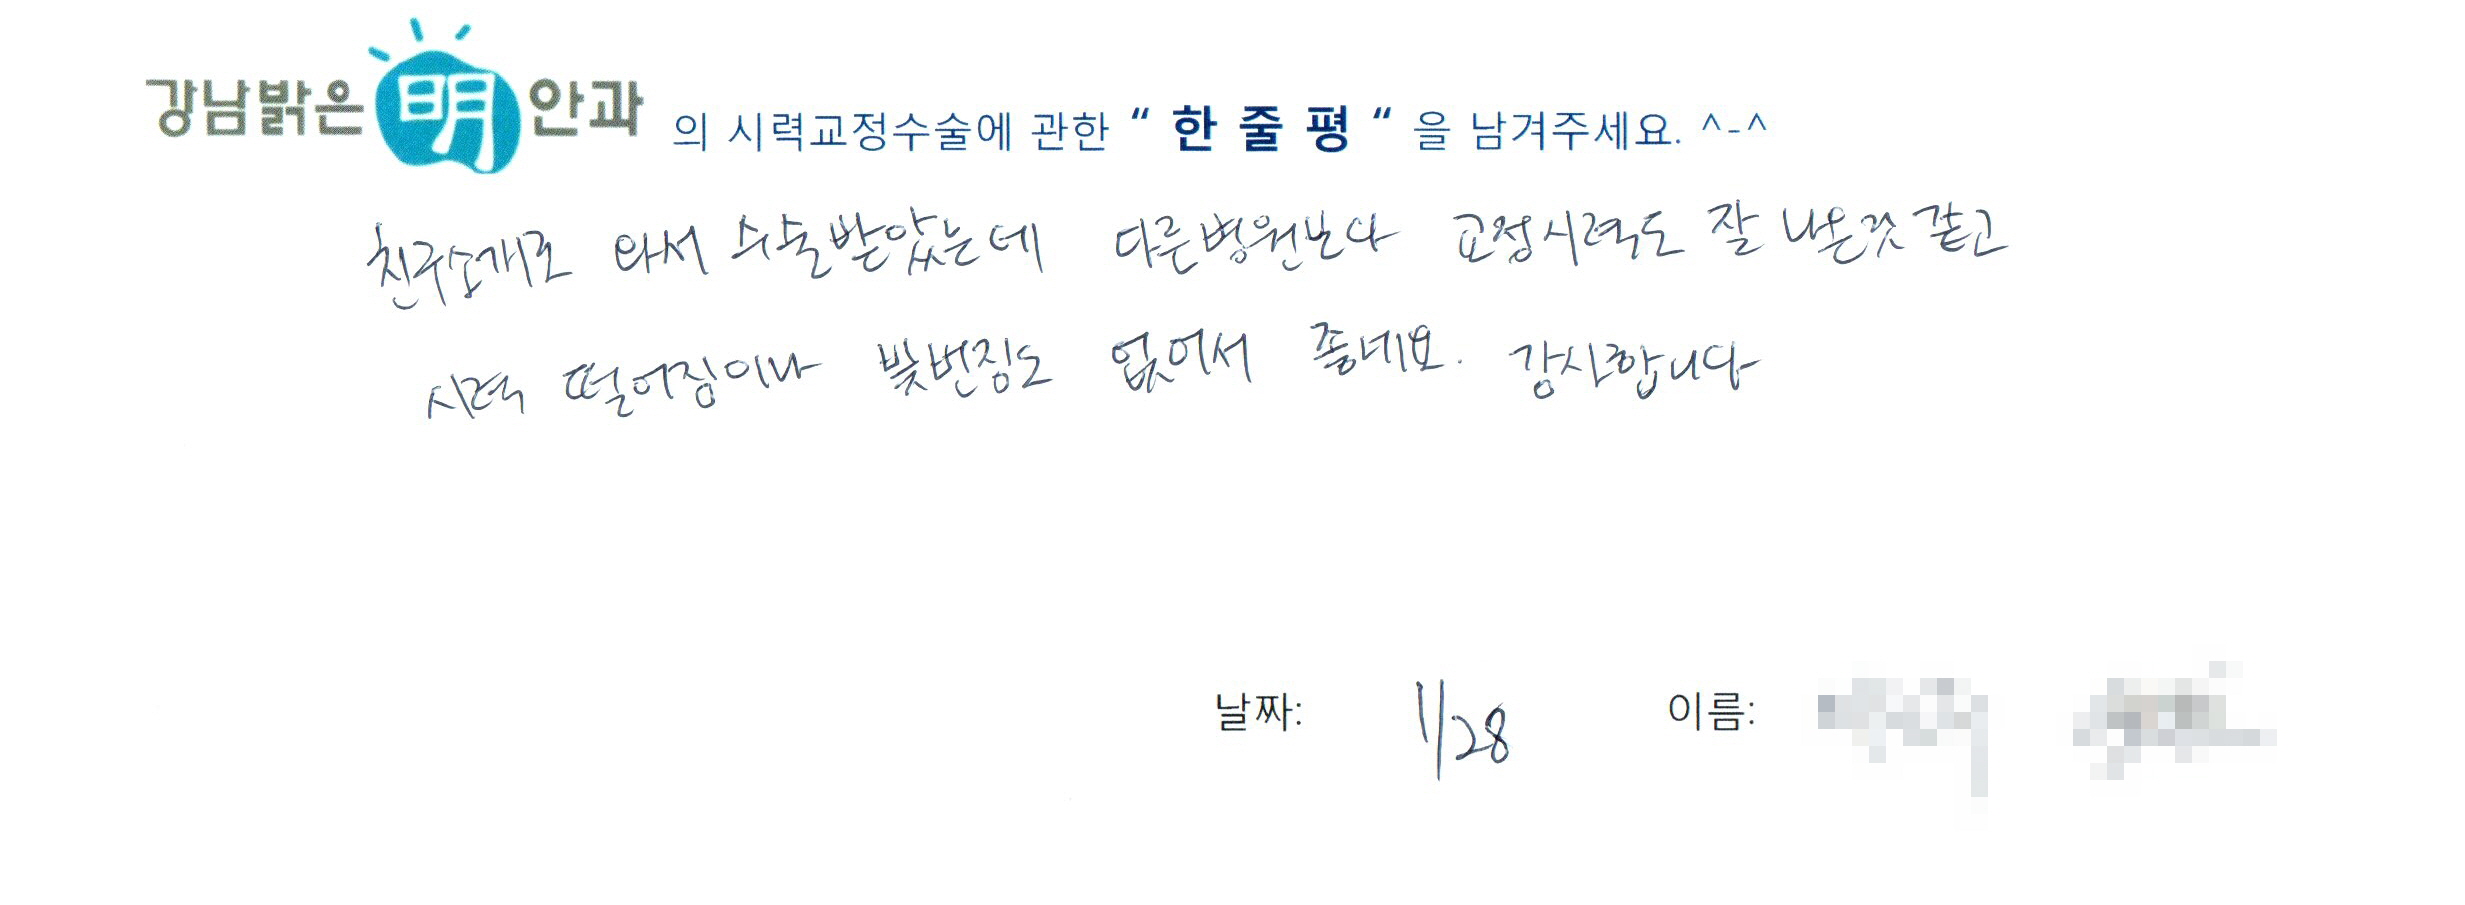 강남밝은明안과 의 시력교정수술에 관한 “ 한 줄 평 “ 을 남겨주세요. ^-^
친구소개로 와서 수술받았는데 다른병원보다 교정시력도 잘 나온것 같고
시력 떨어짐이나 빛번짐도 없어서 좋네요. 감사합니다
날짜: 1/28 이름: